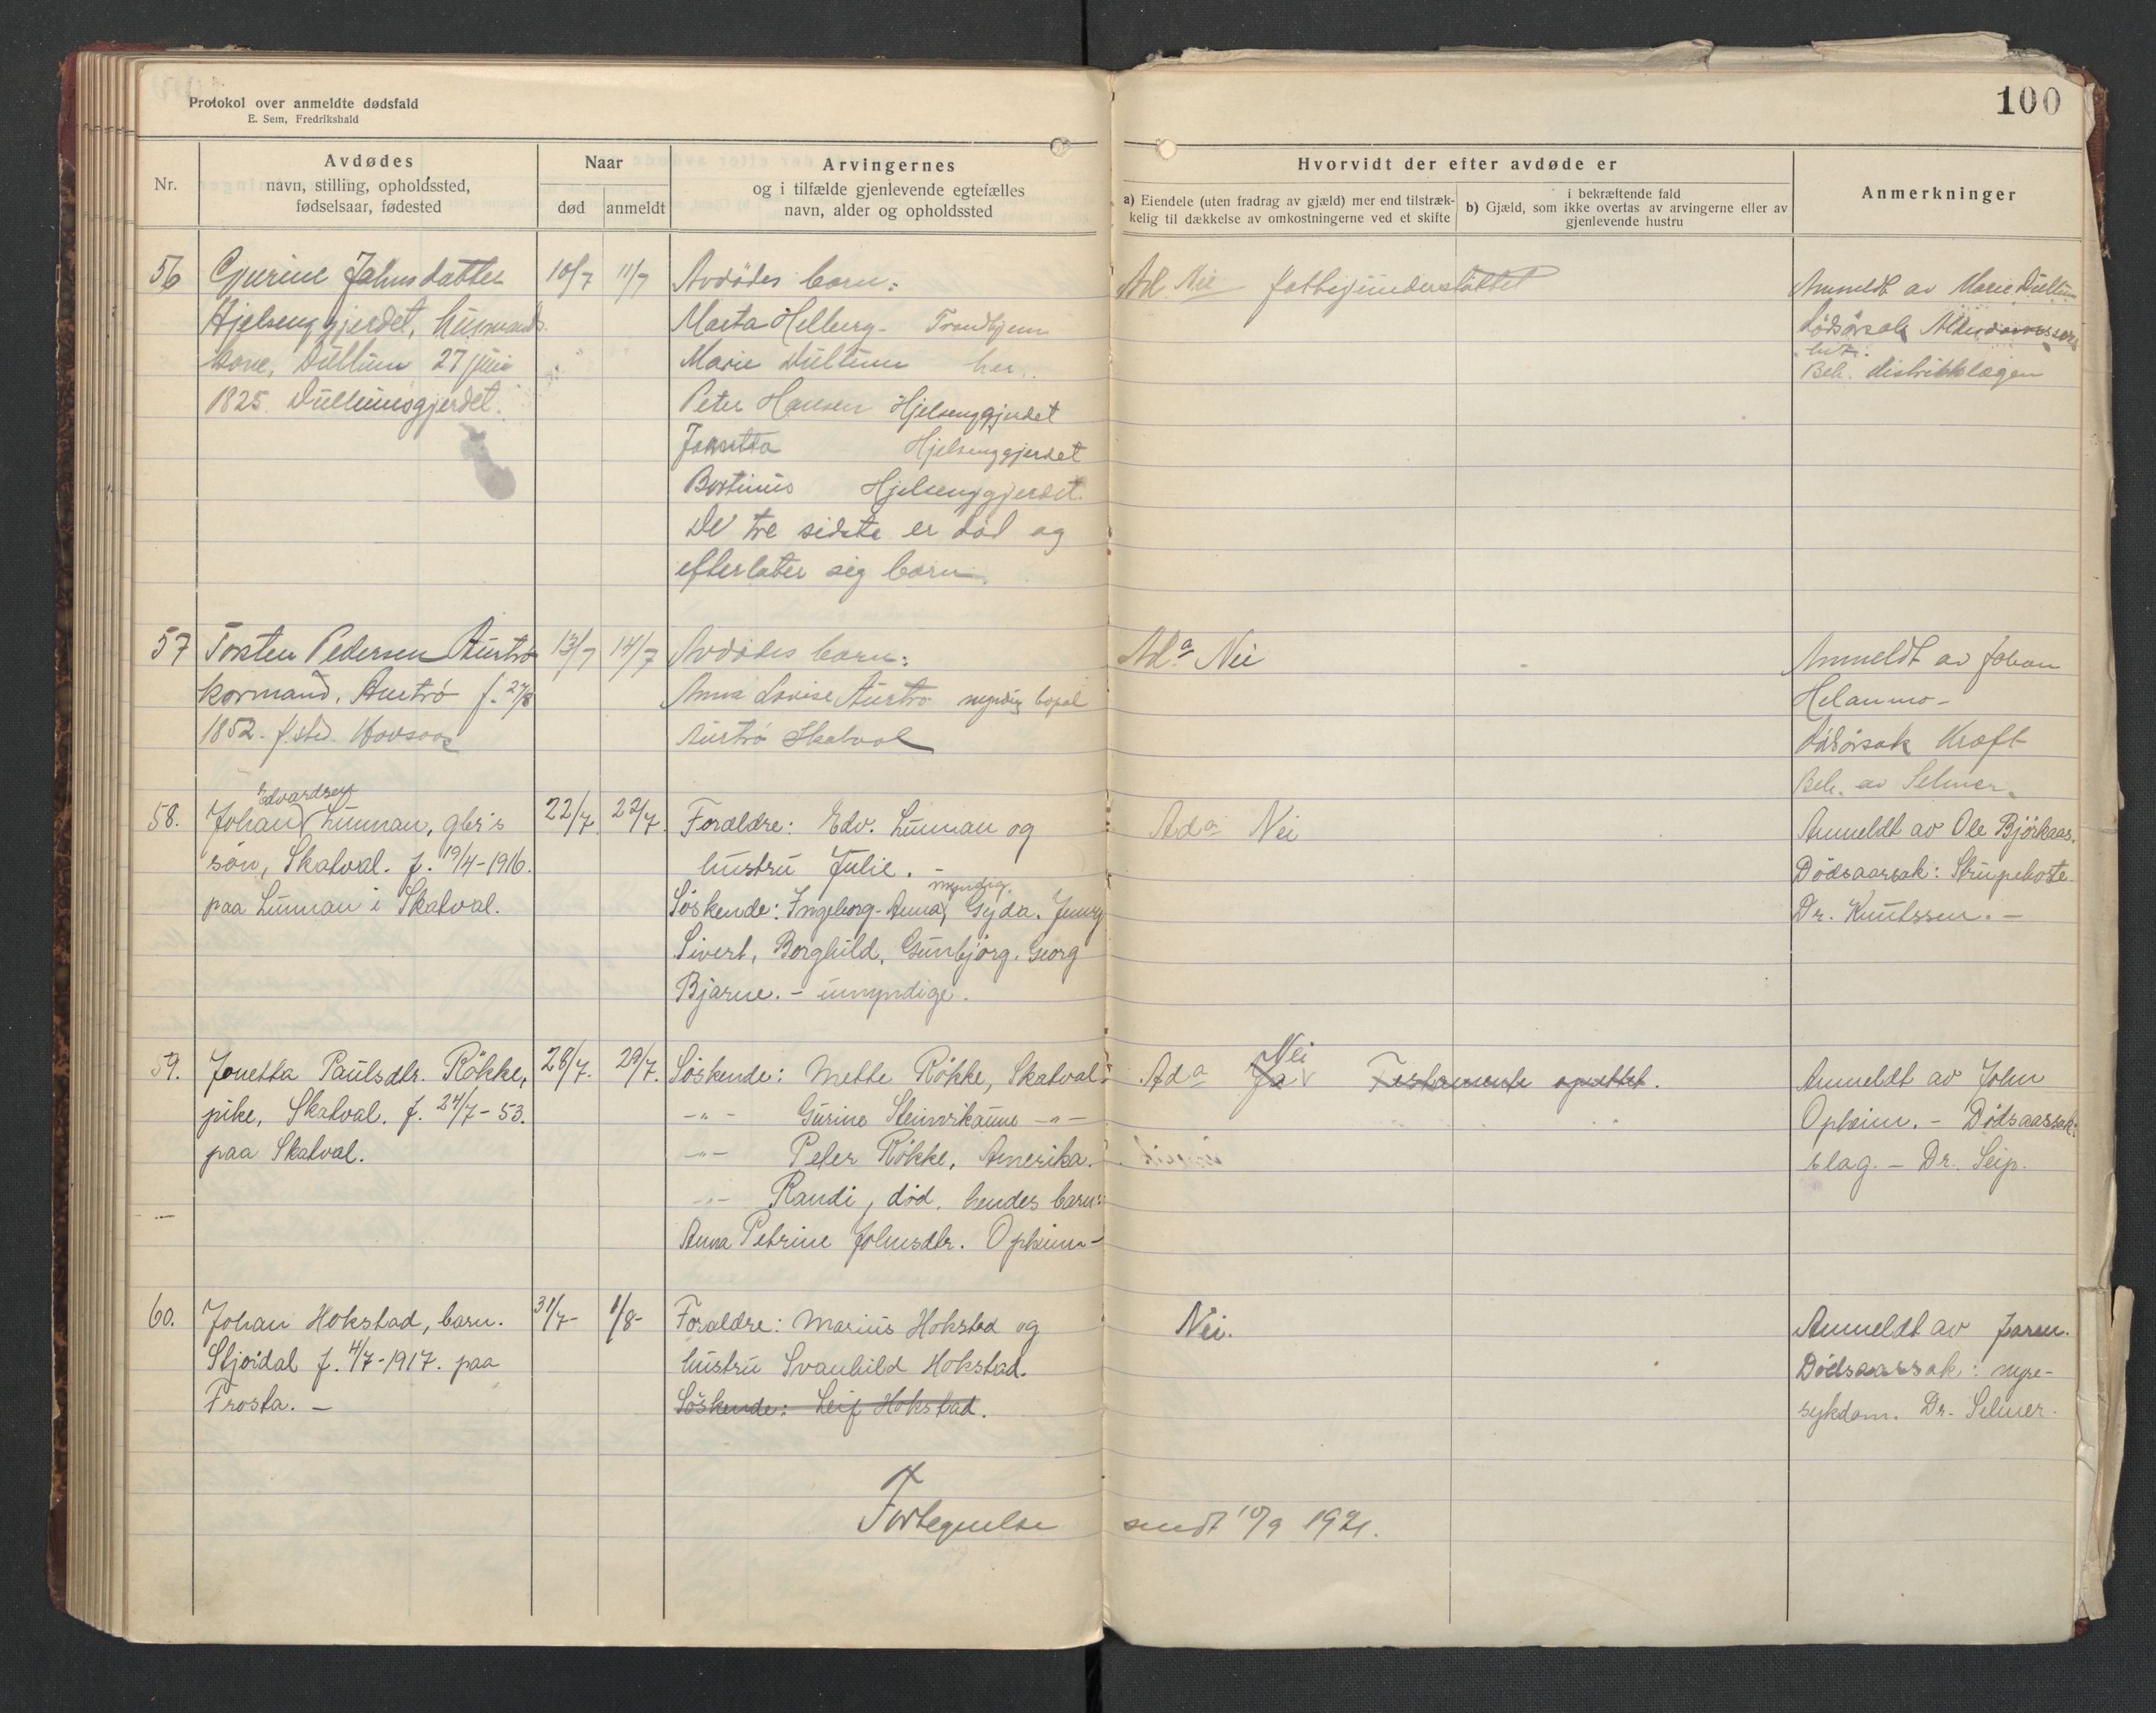 Protokol over anmeldte dødsfald
E. Sem, Fredrikshald
100
Nr.
Avdødes
navn, stilling, opholdssted,
fødselsaar, fødested
Naar
død
anmeldt
Arvingernes
og i tilfælde gjenlevende egtefælles
navn, alder og opholdssted
Hvorvidt der efter avdøde er
a) Eiendele (uten fradrag av gjæld) mer end tilstræk-
kelig til dækkelse av omkostningerne ved et skifte
i bekræftende fald
b) Gjæld, som ikke overtas av arvingerne eller av
gjenlevende hustru
Anmerkninger
56 Gjurine Johnsdatter 10/7 11/7 Avdødes barn:
Hjelsenggjerdet, husmands
kone, Dullum 27 juni
1825. Dullumsgjerdet.
Marta Helberg - Trondhjem
Marie Dullum her.
Peter Hansen Hjelsenggjerdet
Jonetta Hjelsenggjerdet
Bortinus Hjelsenggjerdet.
De tre sidste er død og
efterlater sig barn.
Ad. Nei fattigunderstøttet
Anmeldt av Marie Dullum
Dødsårsak
Beh. distriktslægen
57 Torsten Pedersen Austrø 13/7 14/7 Avdødes barn:
kormand, Austrø f. 27/8
1852. f.sted. Hovsaas
Anna Lovise Austrø myndig bopæl
Austrø Skatval
Ad. a Nei
Anmeldt av Johan
Helanmo -
Dødsårsak Kræft
Beh. av Selmer.
58. Johan Edvardsen Lunnan, gbr's 22/7 22/7. Forældre: Edv. Lunnan og
søn, Skatval. f. 19/4-1916.
paa Lunnan i Skatval.
hustru Julie. -
Søskende: Ingeborg-Anna, myndig. Gyda. Jenny
Sivert, Borghild, Gunbjørg. Georg
Bjarne. - umyndige.
Ad a Nei
Anmeldt av Ole Bjørkaas.
Dødsaarsak: Strupehoste.
Dr. Knutssen. -
59. Jonetta Paulsdtr. Røkke, 28/7. 29/7. Søskende: Mette Røkke, Skatval.
pike, Skatval. f. 24/7-53.
paa Skatval.
-"- Gurine Steinvikaune -"-
-"- Peter Røkke, Amerika.
-"- Randi, død. hendes barn:
Anna Petrine Johnsdtr. Opheim -
Ad a Ja Nei Testamente oprettet.
Anmeldt av John
Opheim. - Dødsaarsak:
slag. - Dr. Seip.
60. Johan Hokstad, barn. 31/7- 1/8- Forældre: Marius Hokstad og
Stjørdal f. 4/7-1917. paa
Frosta. -
hustru Svanhild Hokstad.
Søskende: Leif Hokstad.
Nei.
Anmeldt av faren.
Dødsaarsak: nyre-
sykdom. Dr. Selmer.
Fortegnelse sendt 10/9 1921.